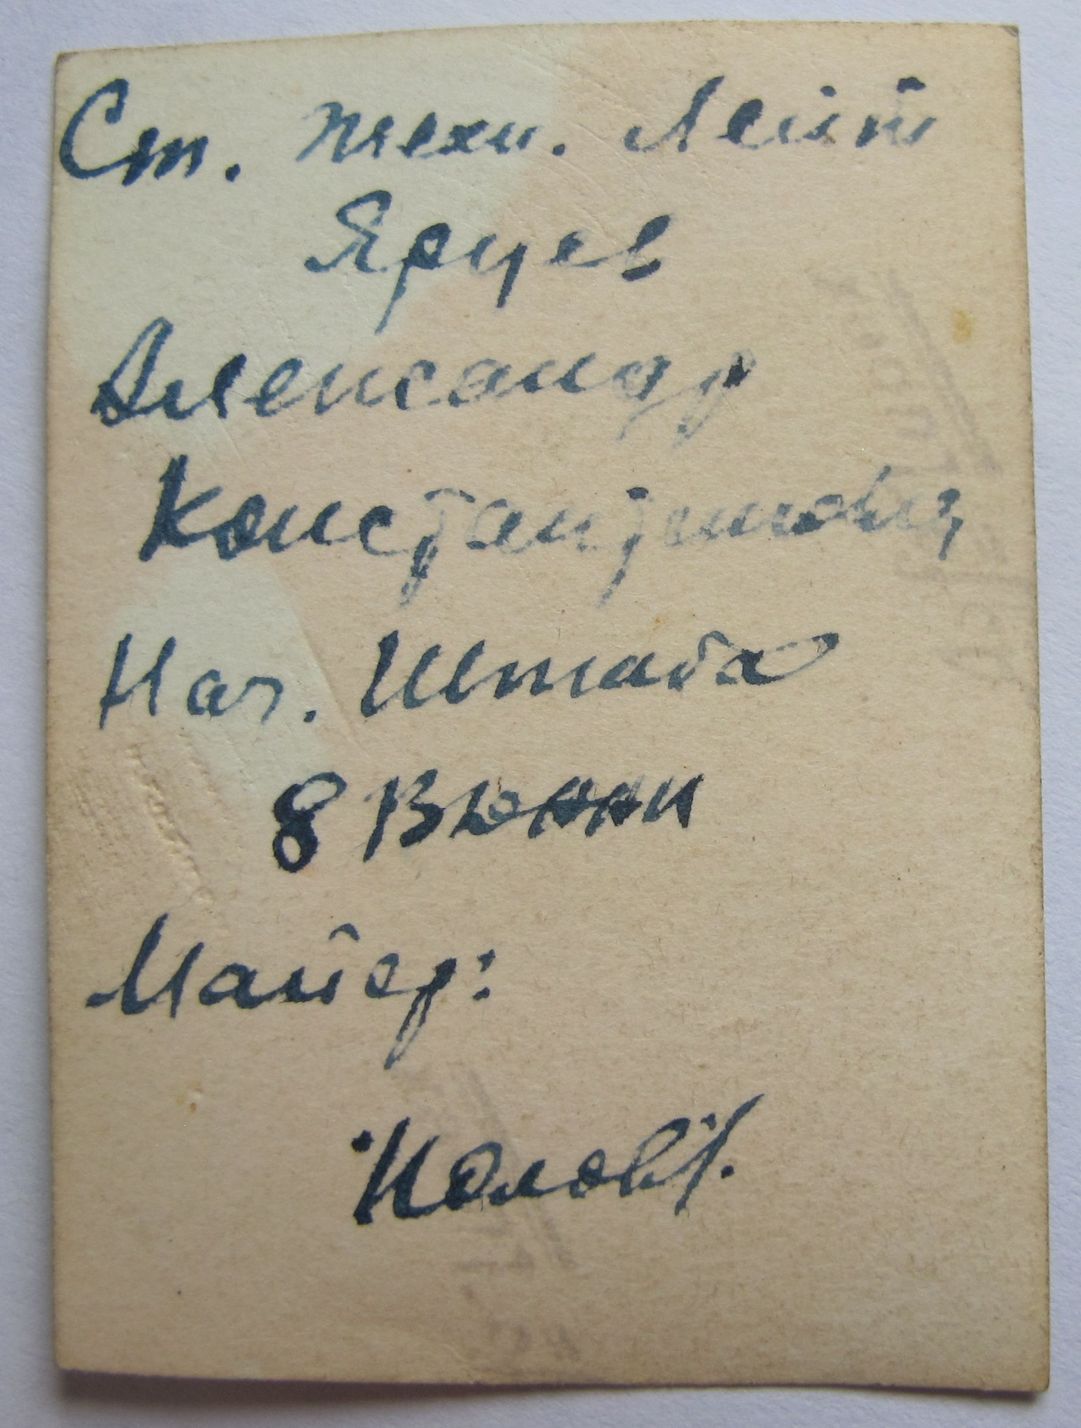 Ст. техн. Лейт
Ярцев
Александр
Константинович
Нач. Штаба
8
Майер: